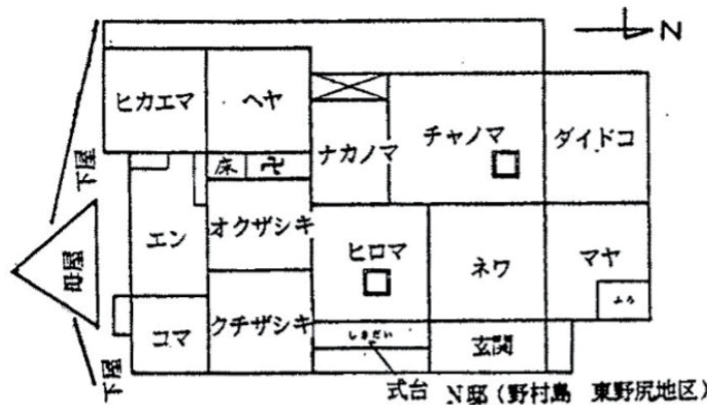 N
ヒカエマ
ヘヤ
ナカノマ
チャノマ
ダイドコ
下屋
床
卍
エン
オクザシキ
ヒロマ
ネワ
マヤ
母屋
ふろ
コマ
クチザシキ
しきだい
玄関
下屋
式台
N邸(野村島 東野尻地区)